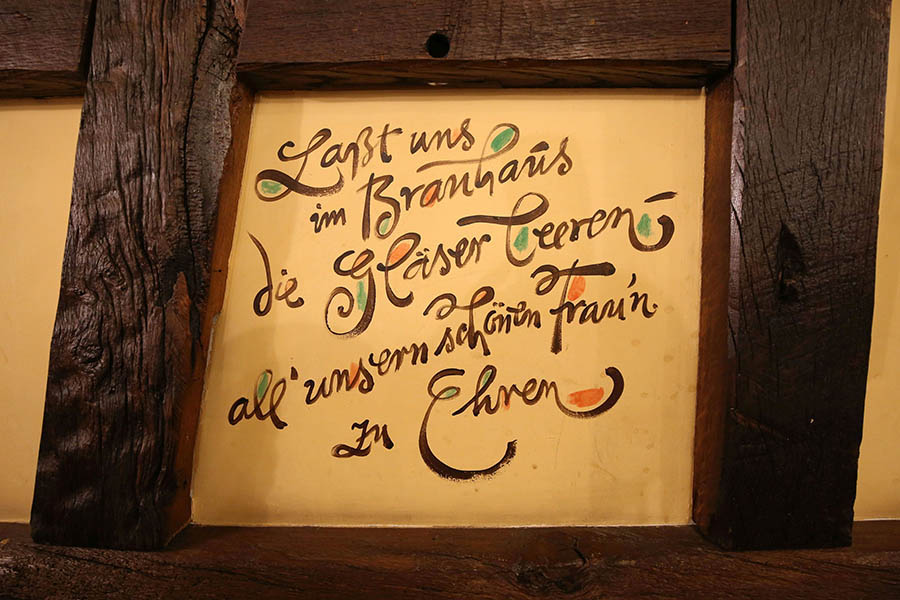 Laßt uns
im Brauhaus
die Gläser leeren
all' unsern schönen Frau'n.
zu Ehren